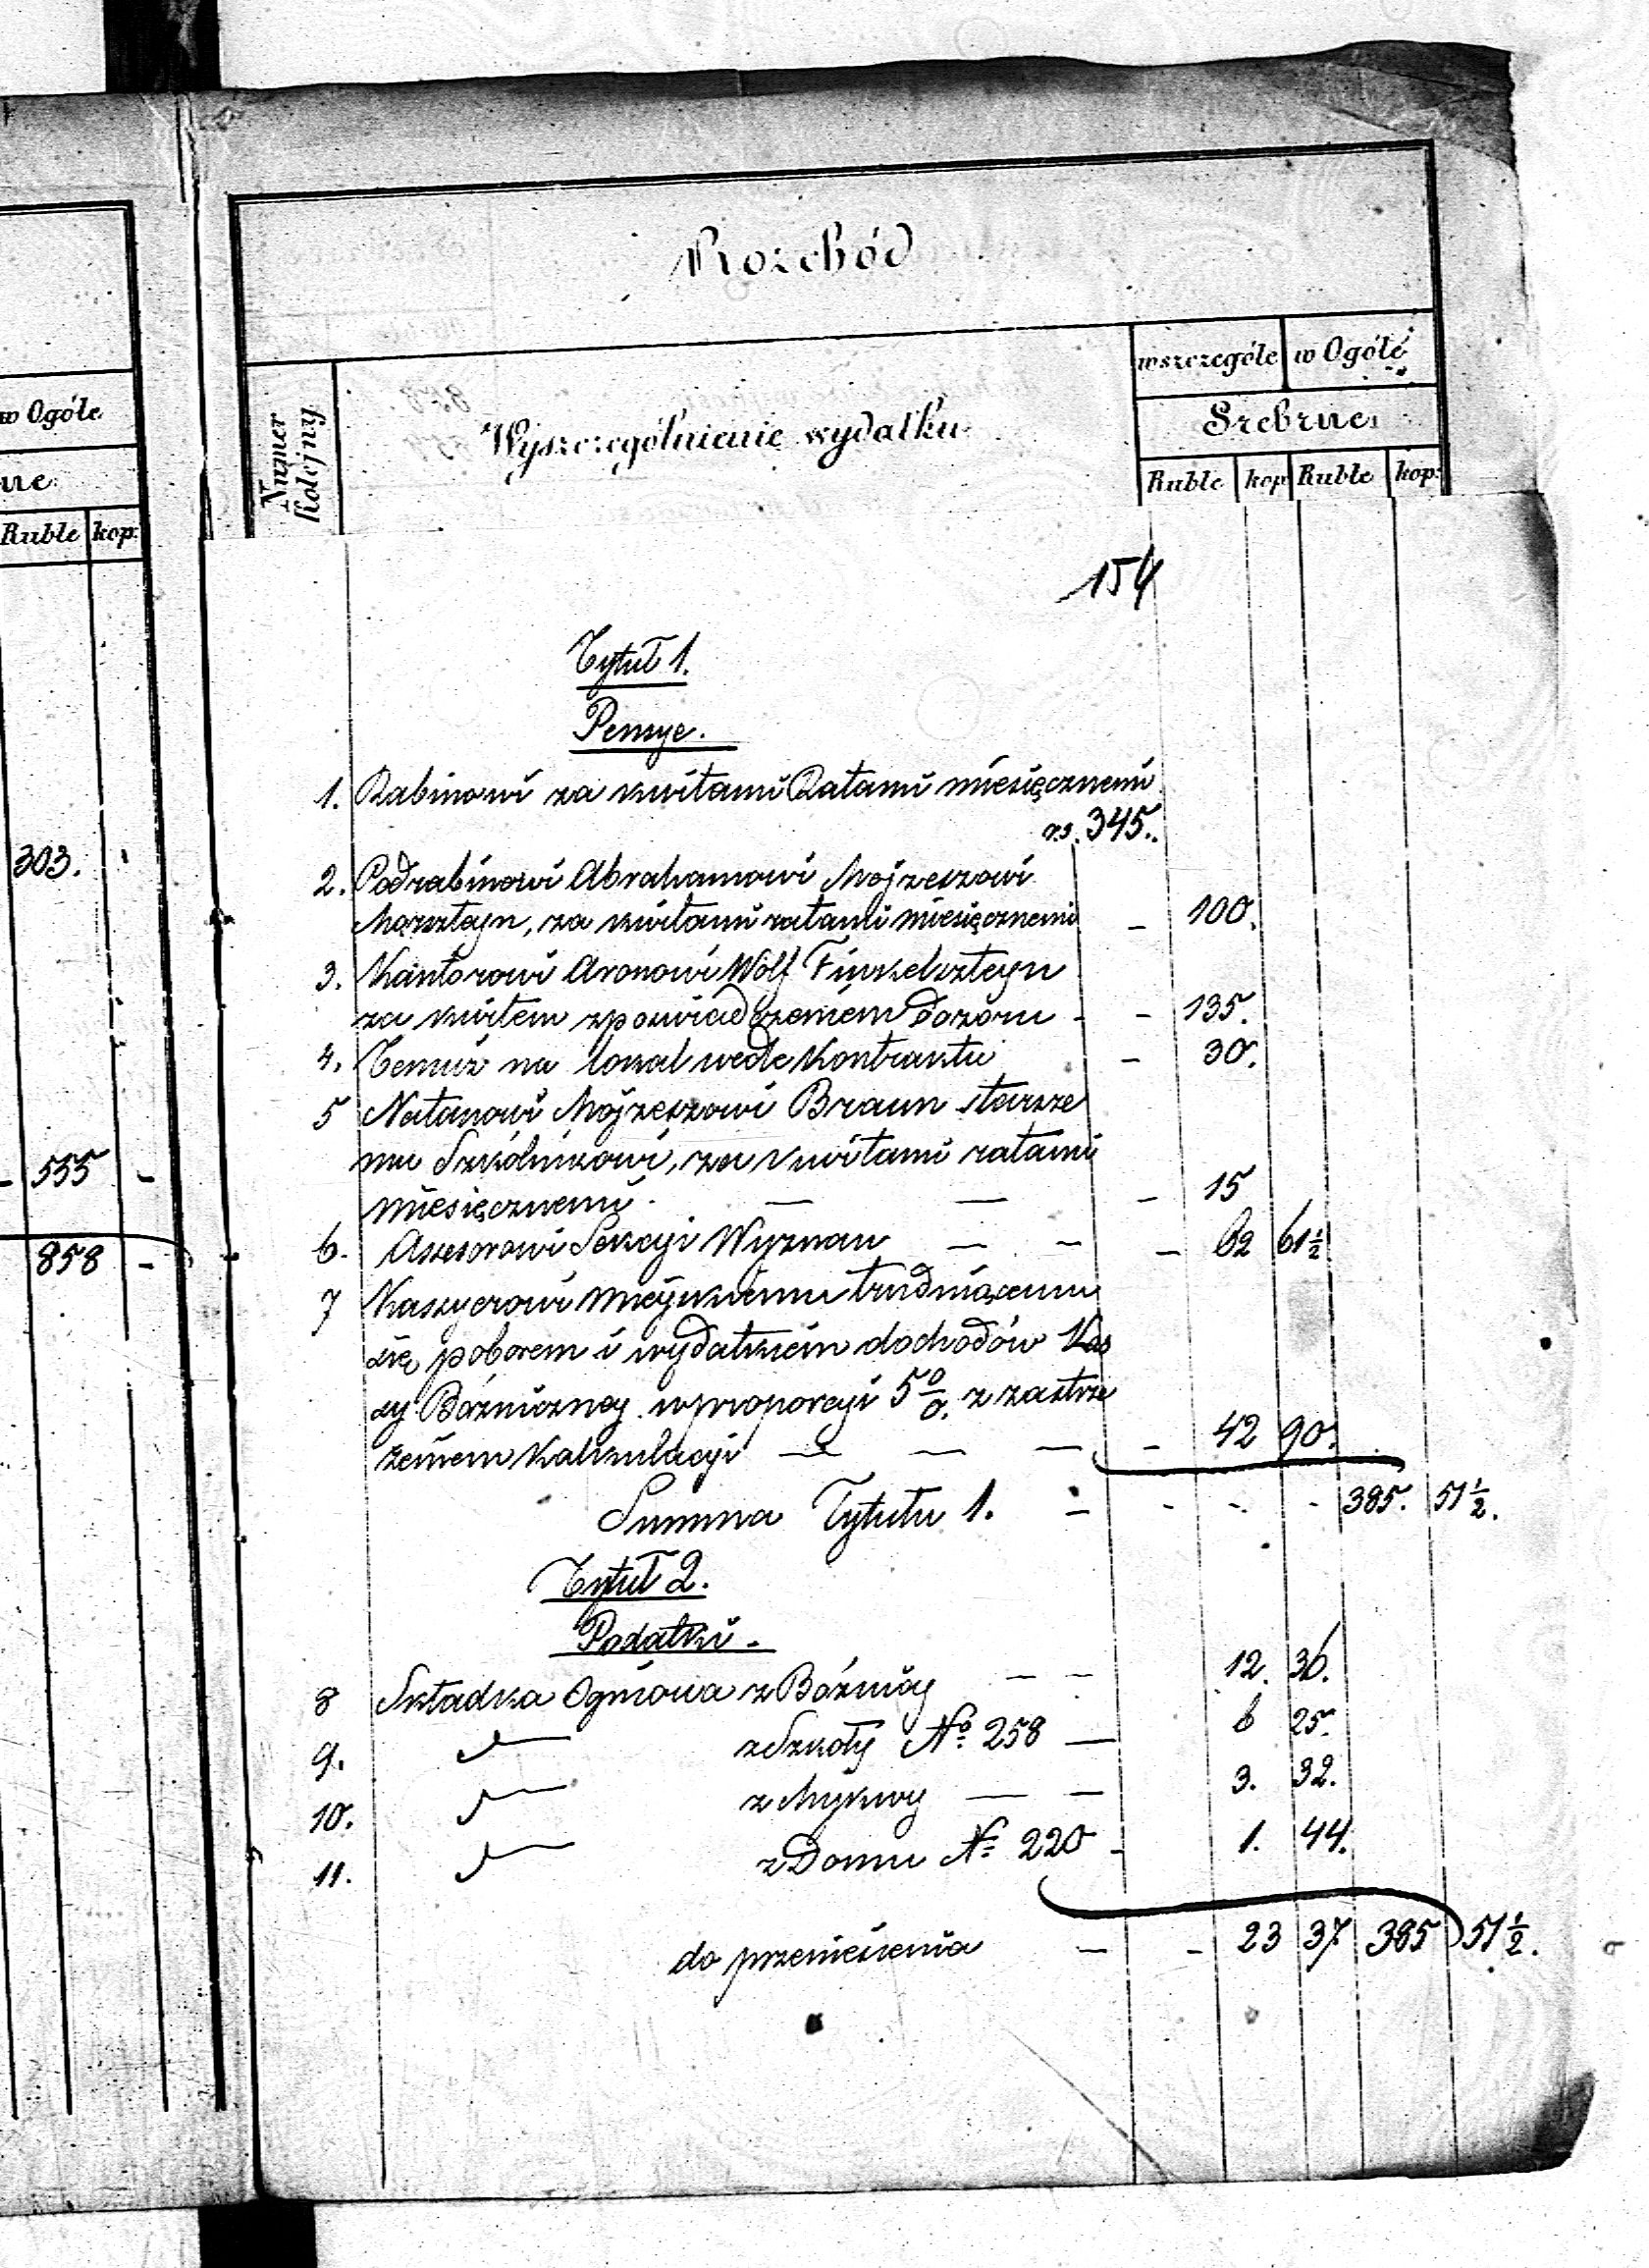 w Ogóle
Ruble kop:
303.
- 555 -
858 -
Rozchód
Numer Kolejny
Wyszczególnienie wydatku
wszczególe w Ogóle
Srebrne
Ruble kop Ruble kop:
154
Tytuł 1.
Pensye.
1. Rabinowi za kwitami Ratami miesięcznemi
rs. 345.
2. Podrabinowi Abrahamowi Mojzeszowi
za kwitami ratami miesięcznemi - 100.
3. Kantorowi Aronowi Wolf Finkelszteyn
za kwitem zpoświadczeniem Dozoru - - 135.
4. na lokal wedle Kontraktu - 30.
5 Natanowi Mojzeszowi Braun starsze
mu Szkólnikowi, za kwitami ratami
miesięcznemi. — — - 15
6. Assesorowi Sekcyi Wyznan — - - 62 61½
7 Kassyerowi Mieyskiemu trudniącemu
się poborem i wydatkiem dochodów Kas
sy Bóżniczney w proporcyi 5 0/0. z zastrze
żeniem Kalkulacyi — — — - 42 90.
Summa Tytułu 1. - - - - 385. 51½.
Tytuł 2.
Podatki.
8 Składka Ogniowa z Bóżnicy — - 12. 36.
9. — z Szkoły No. 258 — 6 25.
10. — z Mykwy — — 3. 32.
11. — z Domu No 220 - 1. 44.
do przeniesienia - - 23 37 385 51½.